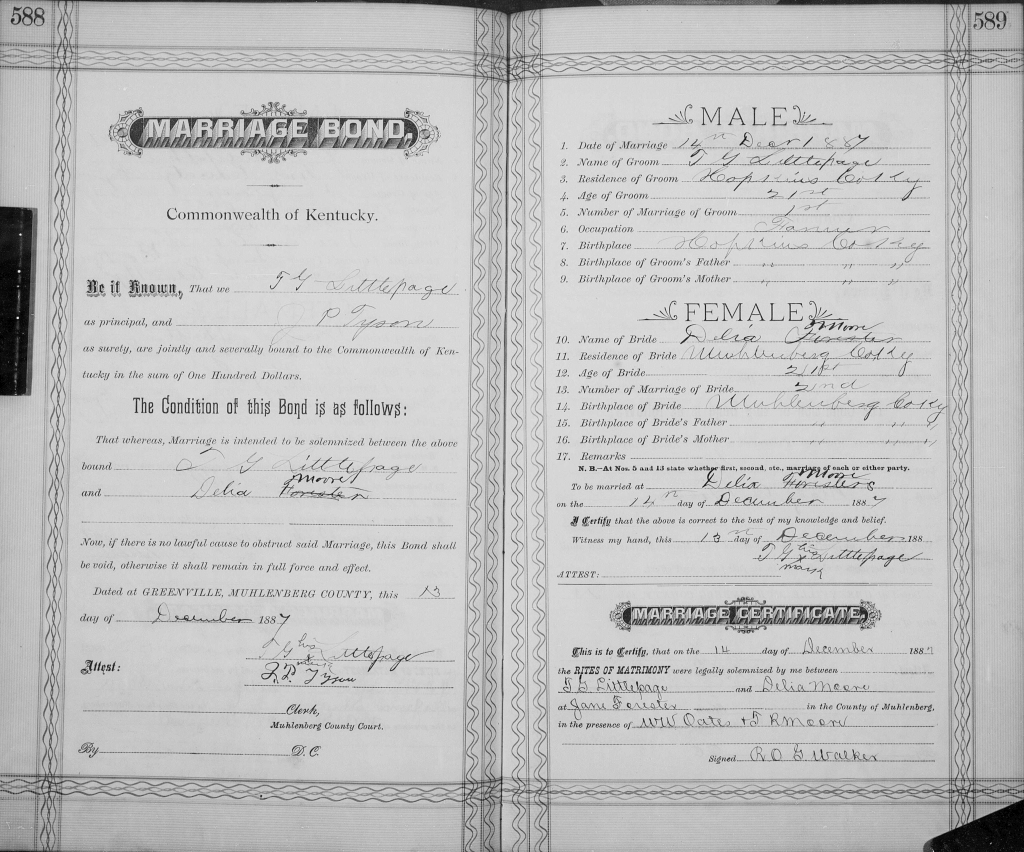 588
MARRIAGE BOND,
Commonwealth of Kentucky.
Be it Known, That we T G Littlepage
as principal, and J P Tyson
as surely, are jointly and severally bound to the Commonwealth of Ken-
tucky in the sum of One Hundred Dollars.
The Condition of this Bond is as follows:
That whereas, Marriage is intended to be solemnized between the above
bound T G Littlepage
Moore
and Delia Forister
Now, if there is no lawful cause to obstruct said Marriage, this Bond shall
be void, otherwise it shall remain in full force and effect.
Dated at GREENVILLE, MUHLENBERG COUNTY, this 13
day of December 1887
his
T G x Littlepage
mark
Attest: J. P. Tyson
Clerk,
Muhlenberg County Court.
By D. C.
589
MALE
1. Date of Marriage 14th Decr 1887
2. Name of Groom T G Littlepage
3. Residence of Groom Hopkins Co Ky
4. Age of Groom 21st
5. Number of Marriage of Groom 1st
6. Occupation Farmer
7. Birthplace Hopkins Co Ky
8. Birthplace of Groom's Father " " "
9. Birthplace of Groom's Mother " " "
FEMALE
Moore
10. Name of Bride Delia Forister
11. Residence of Bride Muhlenberg Co Ky
12. Age of Bride 21st
13. Number of Marriage of Bride 2nd
14. Birthplace of Bride Muhlenberg Co Ky
15. Birthplace of Bride's Father " " "
16. Birthplace of Bride's Mother " " "
17. Remarks
N. B.—At Nos. 5 and 13 state whether first, second, etc., marriage of each or either party.
Moore
To be married at Delia Foristers
on the 14th day of December 1887
I Certify that the above is correct to the best of my knowledge and belief.
Witness my hand, this 13th day of December 188
his
T G x Littlepage
mark
ATTEST:
MARRIAGE CERTIFICATE,
This is to Certify, that on the 14 day of December 1887
the RITES OF MATRIMONY were legally solemnized by me between
T G Littlepage and Delia Moore
at Jane Forister in the County of Muhlenberg,
in the presence of WW Oates & T R Moore
Signed R O G Walker